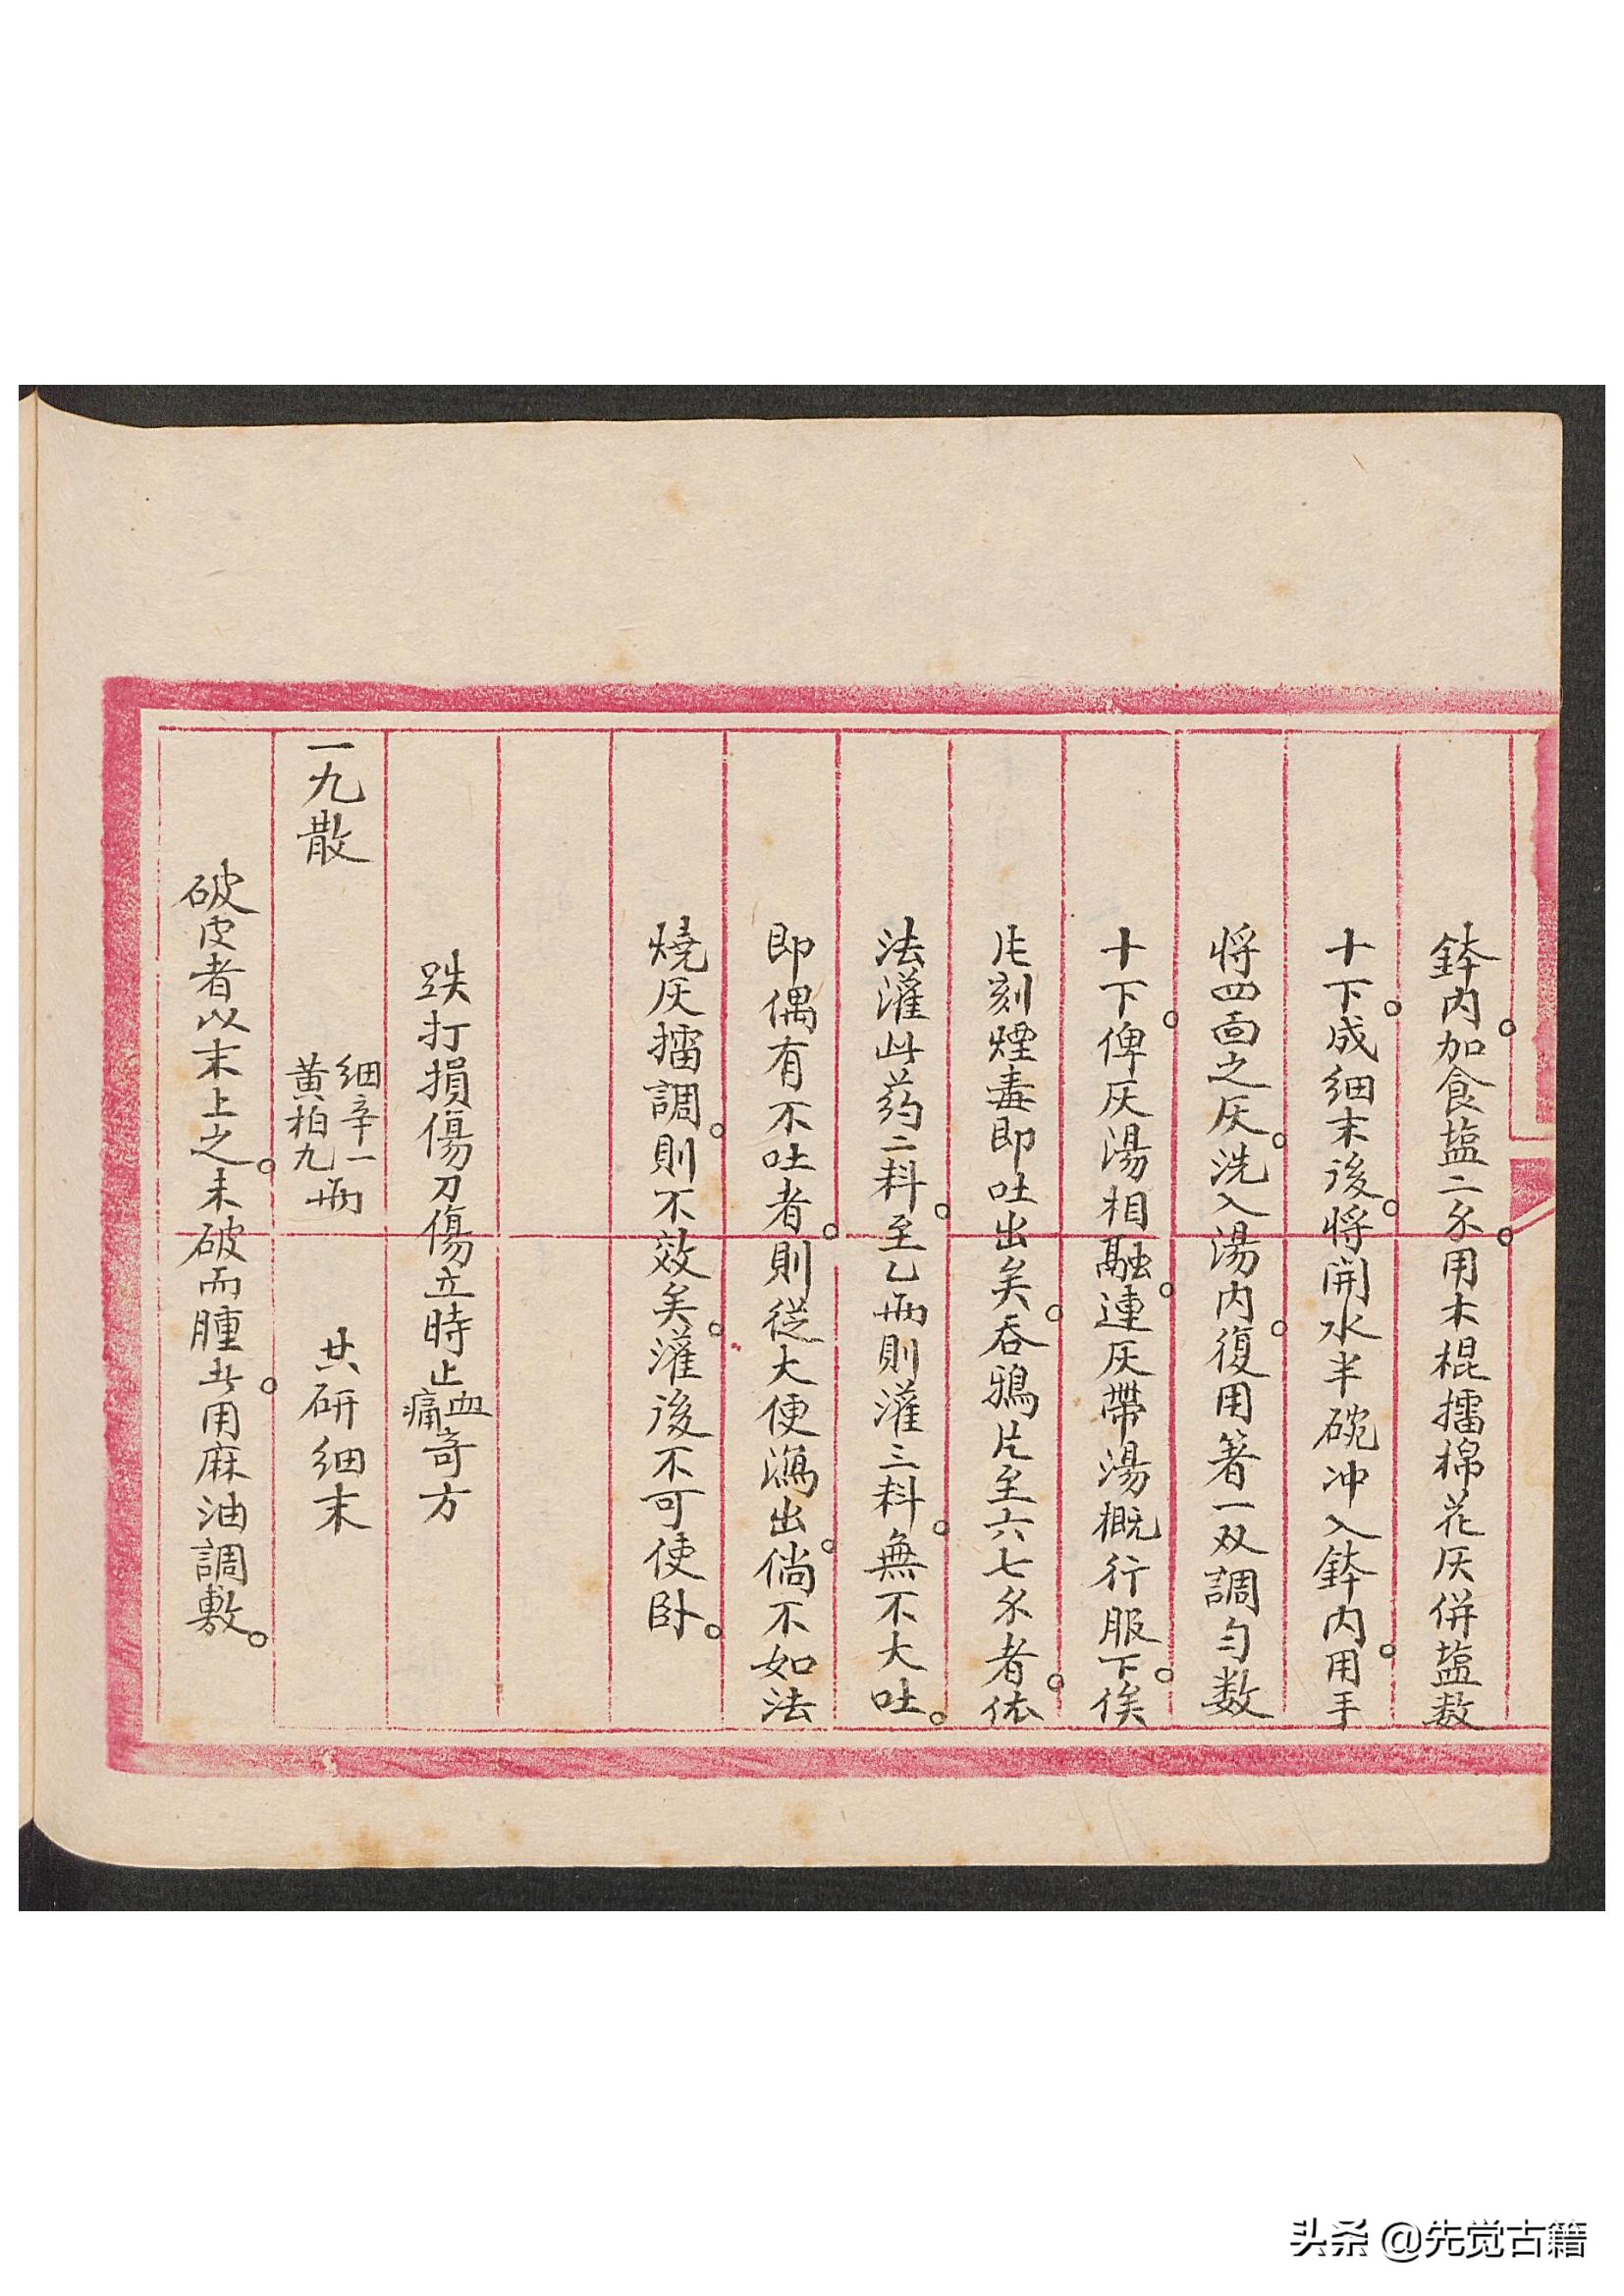 鉢内。加食塩二分。用木棍擂棉花灰併塩数
十下。成细末後。將開水半碗冲入鉢内。用手
將四面之灰。洗入湯内。復用箸一双調匀数
十下。俾灰湯相融。連灰帶湯概行服下。俟
片刻煙毒即吐出矣。吞鴉片至六七分者。依
法灌此药二料。至乙两則灌三料。無不大吐。
即偶有不吐者。則從大便瀉出。倘不如法
燒灰擂調。則不效矣。灌後不可使卧。
跌打損傷刀傷立時止血痛奇方
一九散 细辛一 黄柏九两 共研细末
破皮者以末上之。未破而腫此。用麻油調敷。
头条 @先觉古籍